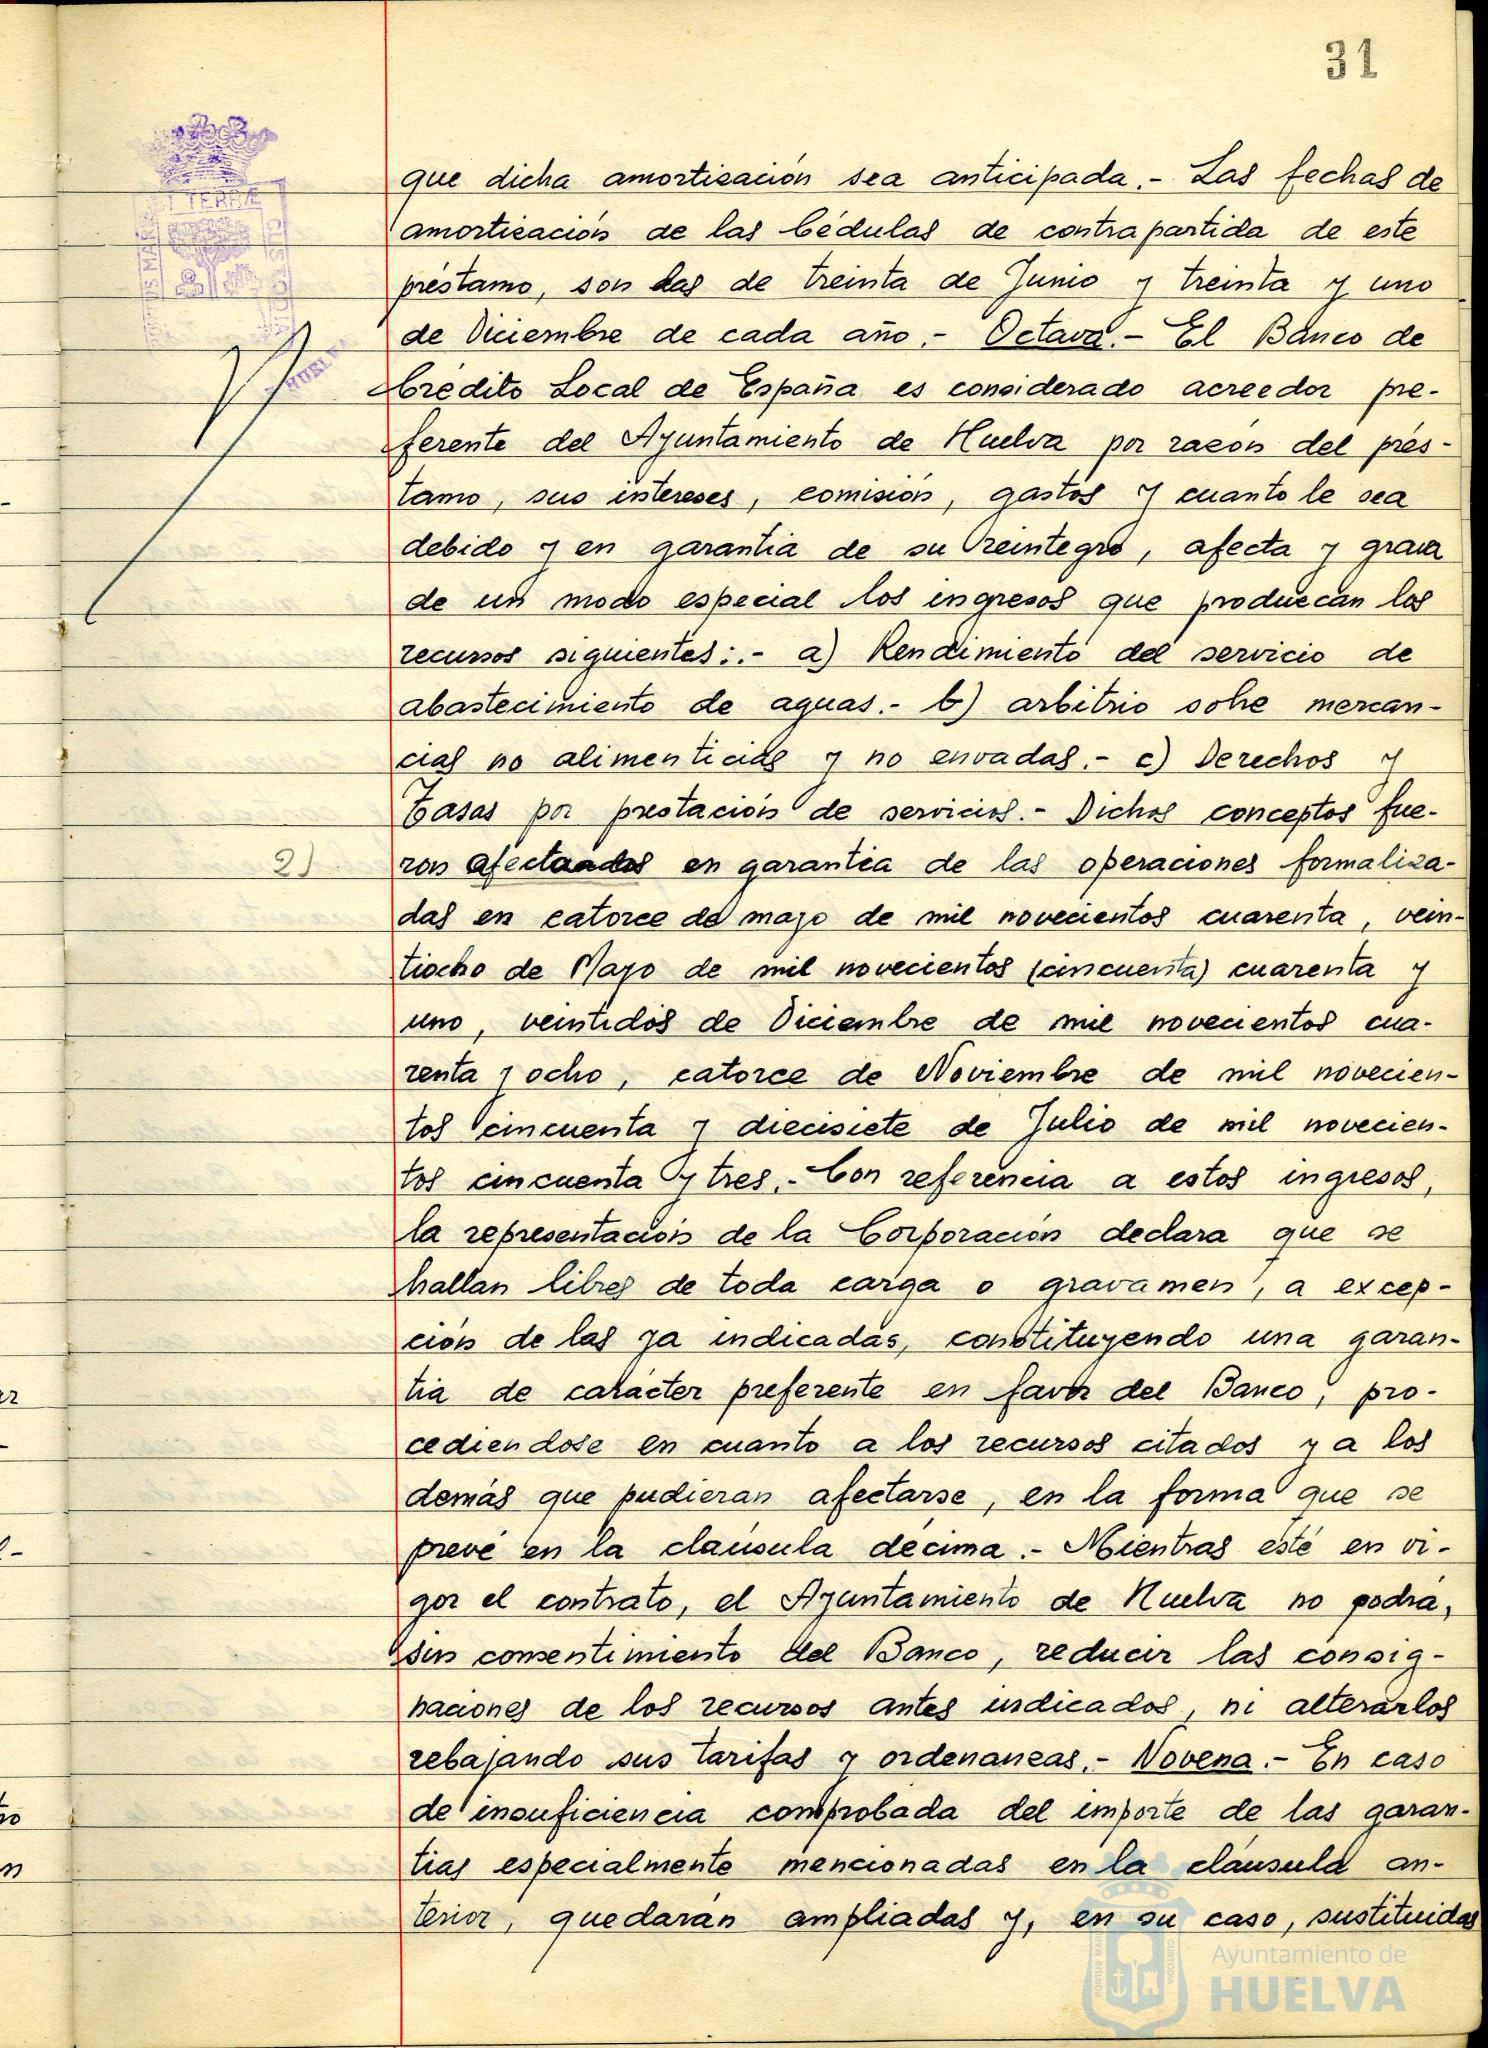 31
que dicha amortización sea anticipada.- Las fechas de
amortización de las Cédulas de contrapartida de este
préstamo, son las de treinta de Junio y treinta y uno
de Diciembre de cada año.- Octava.- El Banco de
Crédito Local de España es considerado acreedor pre-
ferente del Ayuntamiento de Huelva por razón del prés-
tamo, sus intereses, comisión, gastos y cuanto le sea
debido y en garantia de su reintegro, afecta y grava
de un modo especial los ingresos que produzcan los
recursos siguientes:.- a) Rendimiento del servicio de
abastecimiento de aguas.- b) arbitrio sobre mercan-
cias no alimenticias y no envadas.- c) Derechos y
Tasas por prestación de servicios.- Dichos conceptos fue-
2) ron afectados en garantia de las operaciones formaliza-
das en catorce de mayo de mil novecientos cuarenta, vein-
tiocho de Mayo de mil novecientos (cincuenta) cuarenta y
uno, veintidós de Diciembre de mil novecientos cua-
renta y ocho, catorce de Noviembre de mil novecien-
tos cincuenta y diecisiete de Julio de mil novecien-
tos cincuenta y tres.- Con referencia a estos ingresos,
la representación de la Corporación declara que se
hallan libres de toda carga o gravamen, a excep-
ción de las ya indicadas, constituyendo una garan-
tia de carácter preferente en favor del Banco, pro-
cediendose en cuanto a los recursos citados y a los
demás que pudieran afectarse, en la forma que se
prevé en la claúsula décima.- Mientras esté en vi-
gor el contrato, el Ayuntamiento de Huelva no podrá,
sin consentimiento del Banco, reducir las consig-
naciones de los recursos antes indicados, ni alterarlos
rebajando sus tarifas y ordenanzas.- Novena.- En caso
de insuficiencia comprobada del importe de las garan-
tias especialmente mencionadas en la cláusula an-
terior, quedarán ampliadas y, en su caso, sustituidas
Ayuntamiento de
HUELVA